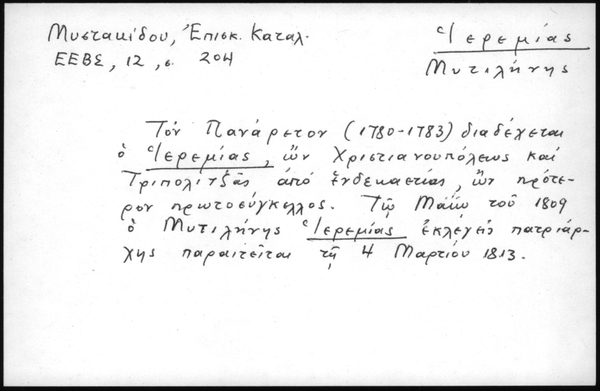 Μυστακίδου, Ἐπισκ. Καταλ.
ΕΕΒΣ, 12, σ. 204
Ἱερεμίας
Μυτιλήνης
Τὸν Πανάρετον (1780-1783) διαδέχεται
ὁ Ἱερεμίας, ὢν Χριστιανουπόλεως καὶ
Τριπολιτζᾶς ἀπὸ ἑνδεκαετίας, ὢν πρότε-
ρον πρωτοσύγκελλος. Τῷ Μαΐῳ τοῦ 1809
ὁ Μυτιλήνης Ἱερεμίας ἐκλεγεὶς πατριάρ-
χης παραιτεῖται τῇ 4 Μαρτίου 1813.